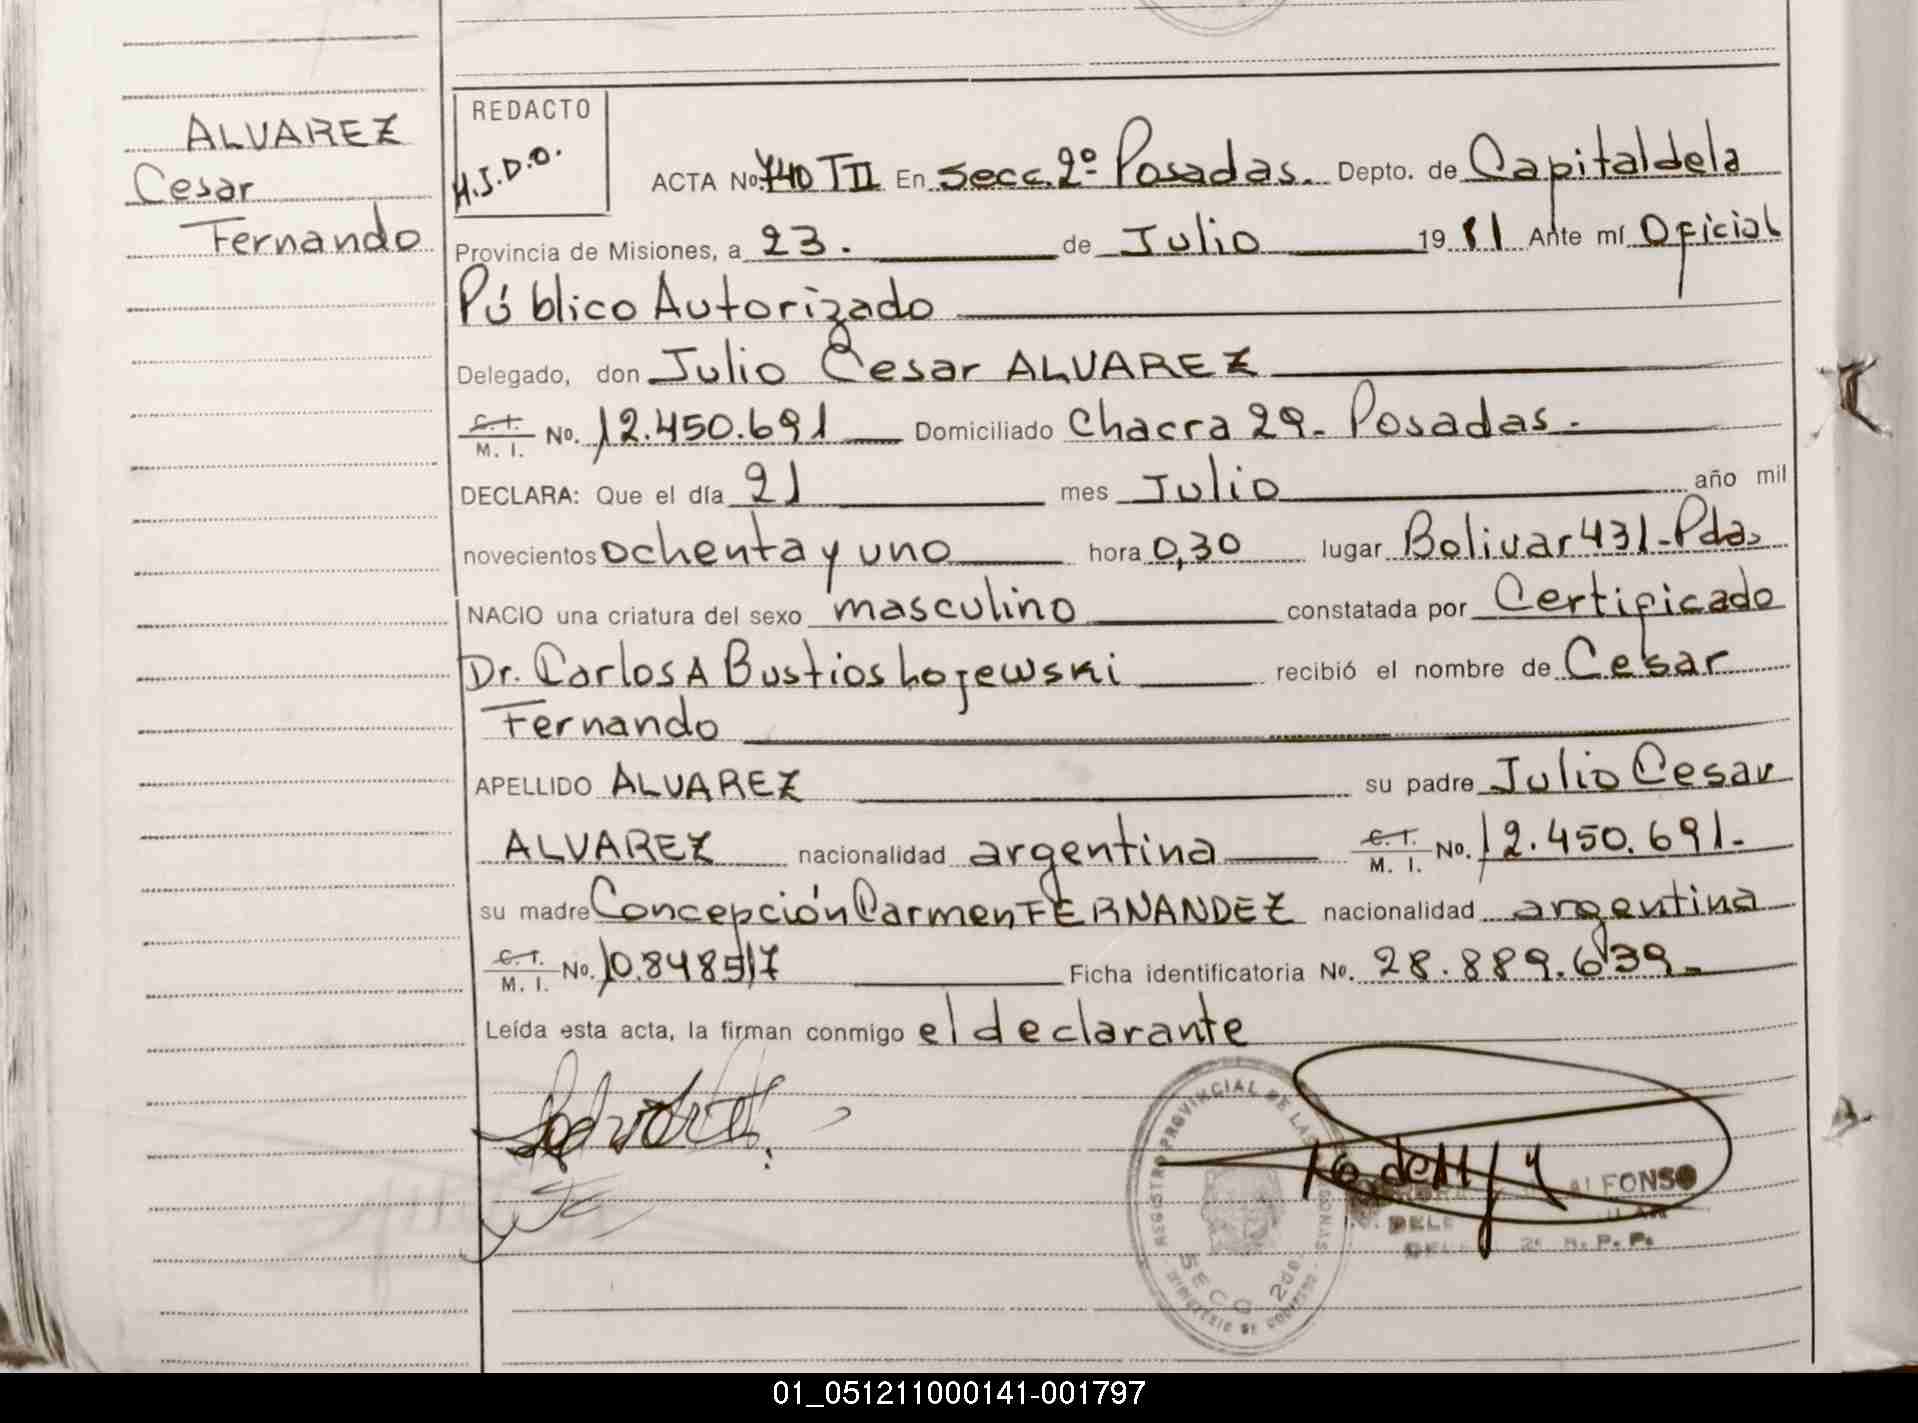 ALVAREZ
Cesar
Fernando
REDACTO
H.J.D.O.
ACTA No. 740 TII En secc. 2º Posadas. Depto. de Capital dela
Provincia de Misiones, a 23. de Julio 1981 Ante mí Oficial
Público Autorizado
Delegado, don Julio Cesar ALVAREZ
C.I. M. I. No. 12.450.691 Domiciliado Chacra 29- Posadas.
DECLARA: Que el día 21 mes Julio año mil
novecientos ochenta y uno hora 0,30 lugar Bolivar 431-Pdas
NACIO una criatura del sexo masculino constatada por Certificado
Dr. Carlos A Bustios Lojewski recibió el nombre de Cesar
Fernando
APELLIDO ALVAREZ su padre Julio Cesar
ALVAREZ nacionalidad argentina C.I. M. I. No. 12.450.691-
su madre Concepción Carmen FERNANDEZ nacionalidad argentina
C.I. M. I. No. 10.848517 Ficha identificatoria No. 28.889.639-
Leída esta acta, la firman conmigo el declarante
REGISTRO PROVINCIAL DE LAS PERSONAS
SECC 2da.
MINISTERIO DE GOBIERNO
ALFONSO
2ª R. P. P.
01_051211000141-001797